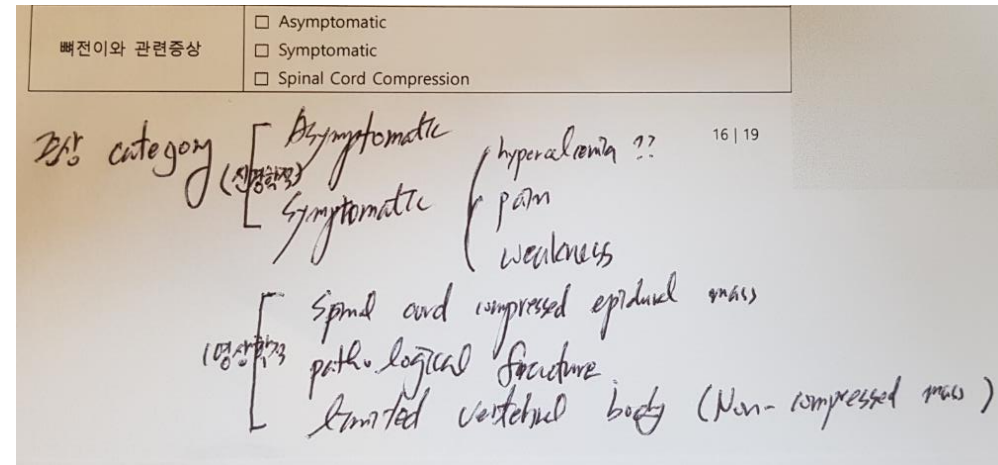 뼈전이와 관련증상
□ Asymptomatic
□ Symptomatic
□ Spinal Cord Compression
16 | 19
증상 category
(신경학적)
Asymptomatic
Symptomatic
hypercalcemia ??
pain
weakness
(영상학적
Spinal cord compressed epidural mass
pathological fracture
limited vertebral body (Non-compressed mass)